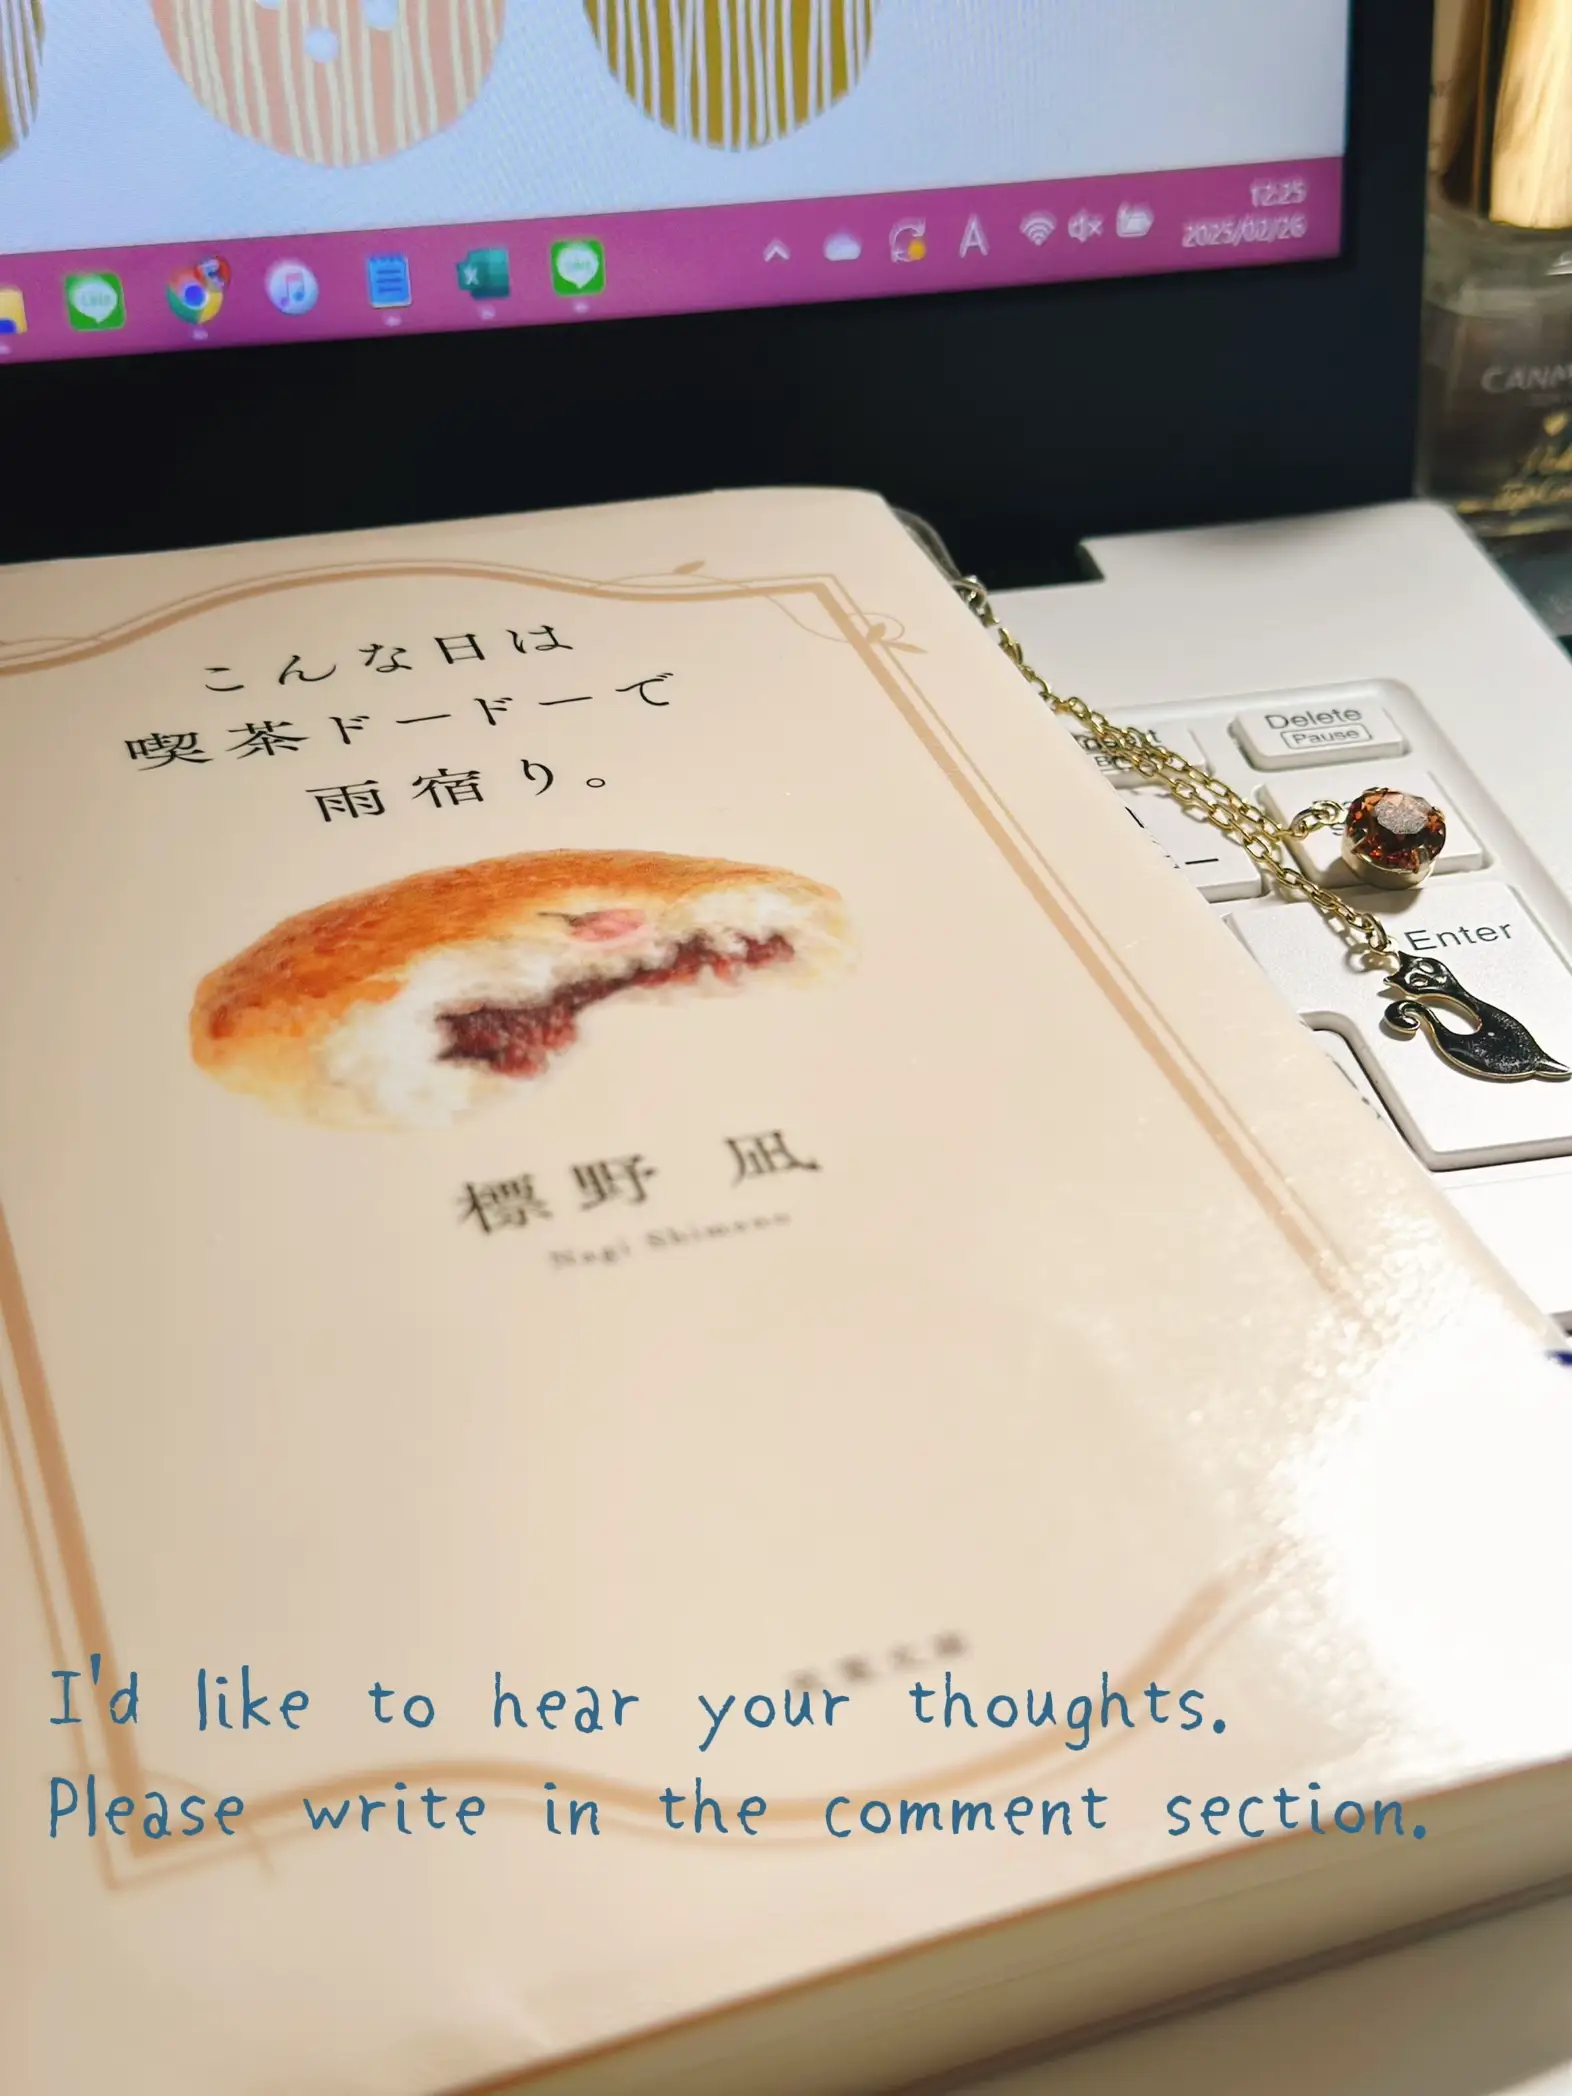 12:25
2025/02/26
A
CANM
こんな日は
喫茶ドードーで
雨宿り。
Delete
Pause
Enter
標野 凪
Nagi Shimeno
I'd like to hear your thoughts.
Please write in the comment section.